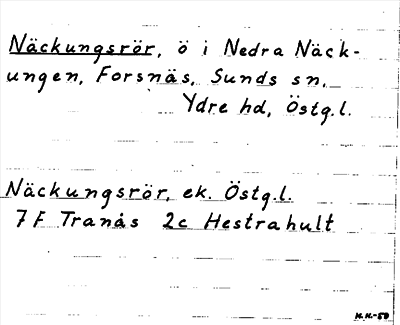 Näckungsrör, ö i Nedra Näck-
ungen, Forsnäs, Sunds sn,
Ydre hd, Östg.l.
Näckungsrör, ek. Östg.l.
7F Tranås 2c Hestrahult
K.K.-59